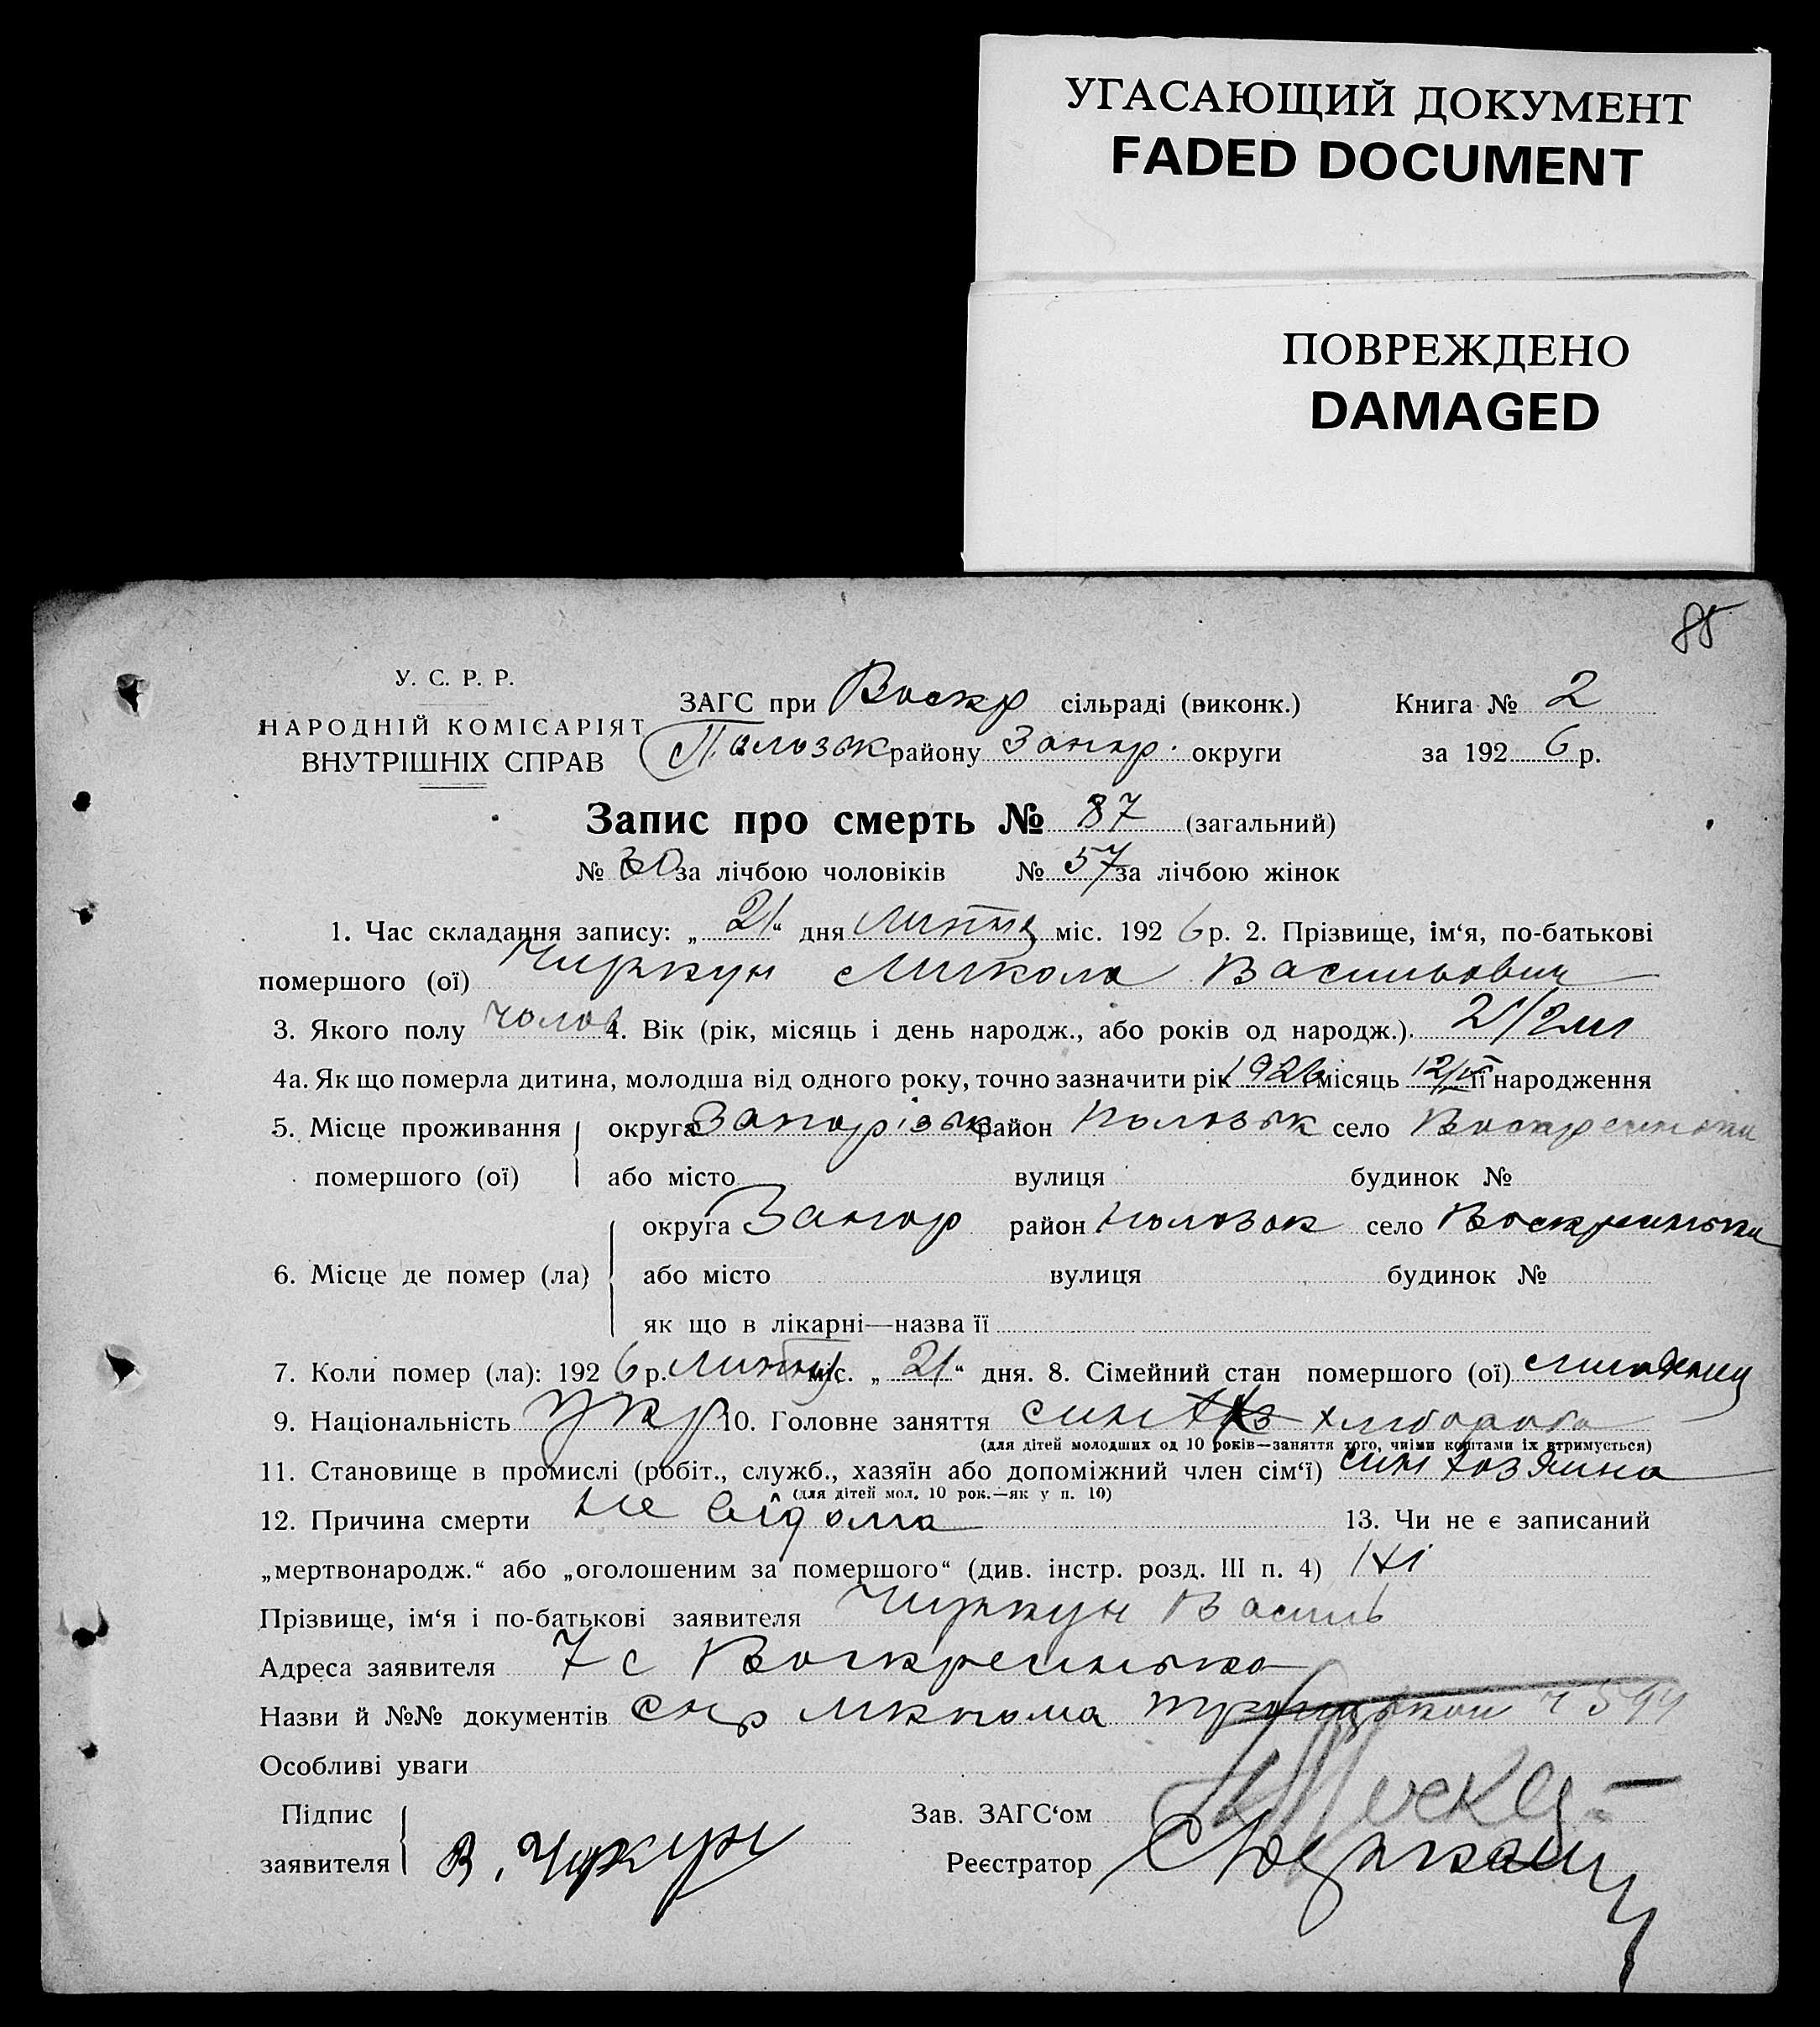 УГАСАЮЩИЙ ДОКУМЕНТ
FADED DOCUMENT
ПОВРЕЖДЕНО
DAMAGED
85
У. С. Р. Р.
НАРОДНІЙ КОМІСАРІЯТ
ВНУТРІШНІХ СПРАВ
ЗАГС при Воскр сільраді (виконк.) Книга № 2
району Запор. округи за 192 6 р.
Запис про смерть № 87 (загальний)
№ 30 за лічбою чоловіків № 57 за лічбою жінок
1. Час складання запису: „ 21 “ дня липня міс. 192 6 р. 2. Прізвище, ім‘я, по-батькові
помершого (ої) Чиркун Микола Васильович
3. Якого полу чолов 4. Вік (рік, місяць і день народж., або років од народж.).
4а. Як що померла дитина, молодша від одного року, точно зазначити рік 1926 місяць її народження
5. Місце проживання округа Запорізьк район село
помершого (ої) або місто вулиця будинок №
округа Запор район село
6. Місце де помер (ла) або місто вулиця будинок №
як що в лікарні—назва її
7. Коли помер (ла): 192 6 р. липня міс. „ 21 “ дня. 8. Сімейний стан помершого (ої)
9. Національність укр 10. Головне заняття син хлібороба
(для дітей молодших од 10 років—заняття того, чиїми коштами їх втримується)
11. Становище в промислі (робіт., служб., хазяїн або допоміжний член сім‘ї) син хозяина
(для дітей мол. 10 рок.—як у п. 10)
12. Причина смерти не відома 13. Чи не є записаний
„мертвонародж.“ або „оголошеним за помершого“ (див. інстр. розд. III п. 4) Ні
Прізвище, ім‘я і по-батькові заявителя Чиркун Василь
Адреса заявителя с Воскресенька
Назви й №№ документів
Особливі уваги
Підпис Зав. ЗАГС‘ом
заявителя В. Чиркун Реєстратор